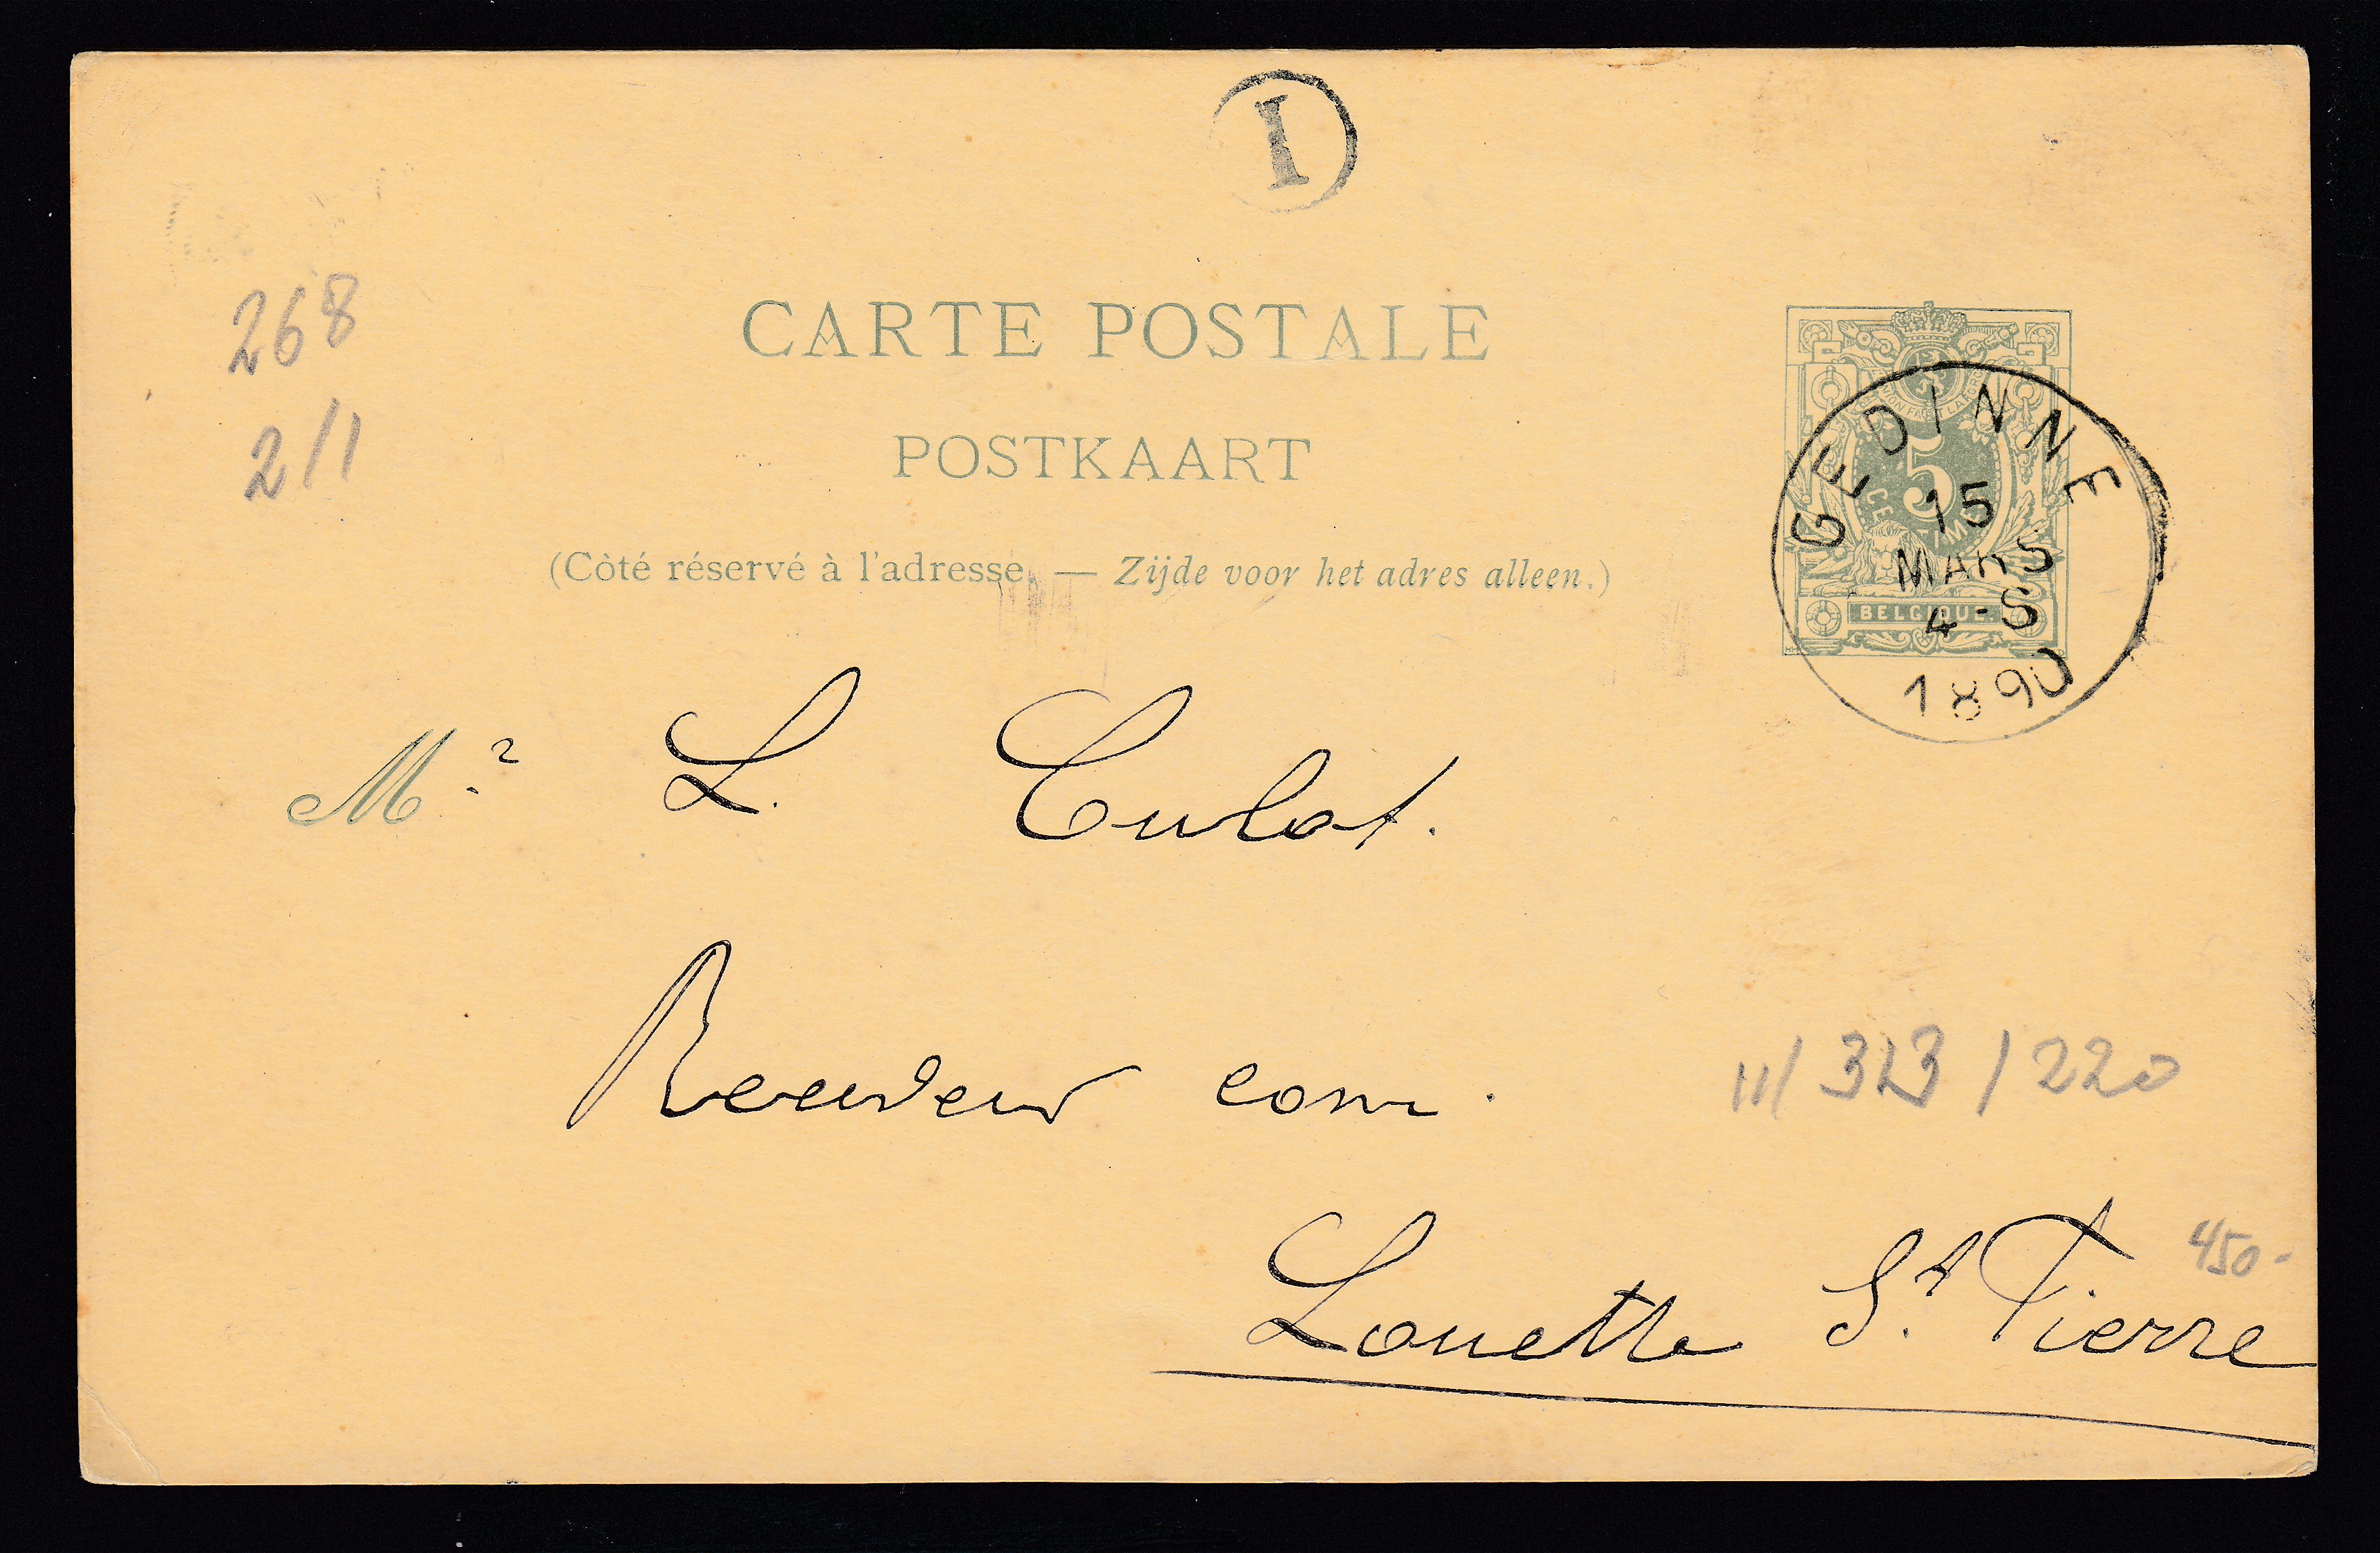 I
268
2/1
CARTE POSTALE
POSTKAART
(Côté réservé à l'adresse. — Zijde voor het adres alleen.)
5
BELGIQUE
GEDINNE
15
MARS
4-S
1890
Mr L. Culot.
Receveur com.
III / 313 / 220
450-
Louette St. Pierre